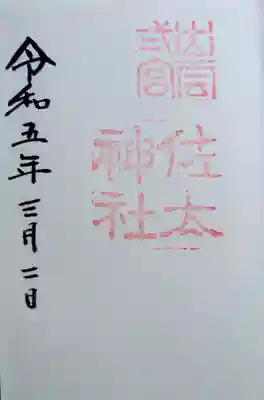 出雲
弍宮
佐太
神社
令和五年三月二日